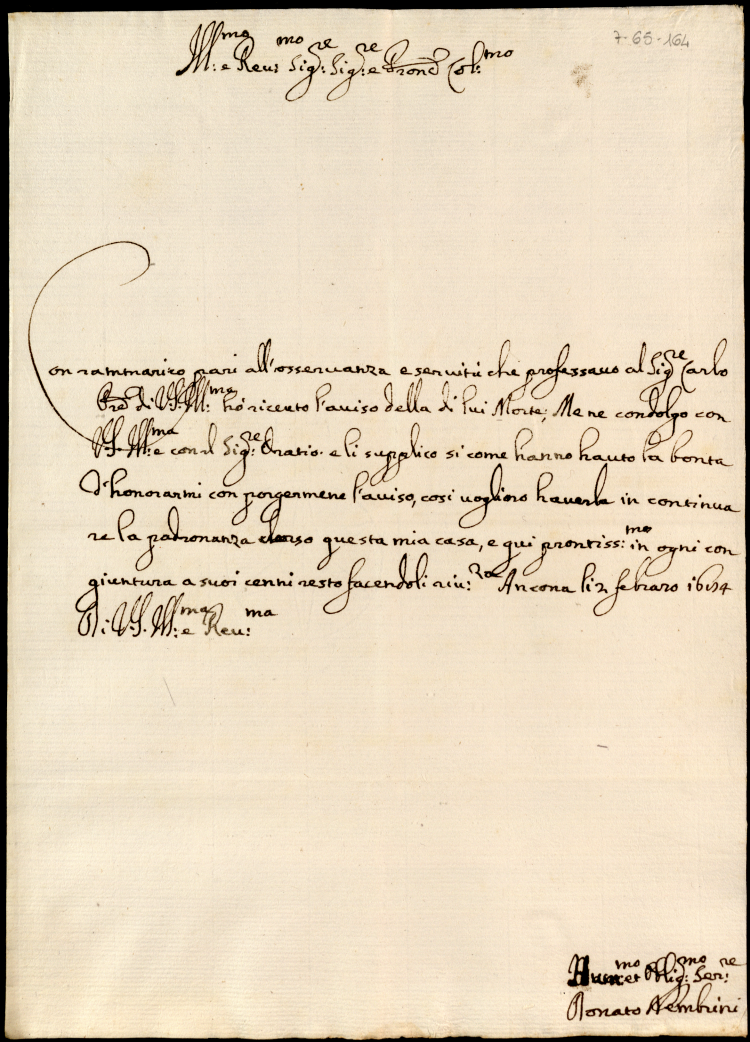 7-65-164
Ill:mo e Reu:mo Sig:re Sig:re e Pron̄e Col:mo
Con rammarico pari all'osseruanza e seruitù che professauo al Sig:re Carlo
Pr̄e di V.S. Ill:ma hò riceuto l'auiso della di lui Morte; Me ne condolgo con
V.S. Ill:ma e con il Sig:re Oratio. e li supplico si come hanno hauto la bontà
d'honorarmi con porgermene l'auiso, così uoglioro hauerla in continua
re la padronanza uerso questa mia casa, e qui prontiss:mo in ogni con
giuntura a suoi cenni resto facendoli riu:za Ancona li 2 febraro
Di V.S. Ill:ma e Reu:ma
Hum:mo et Oblig:mo Ser:re
Donato Nembrini